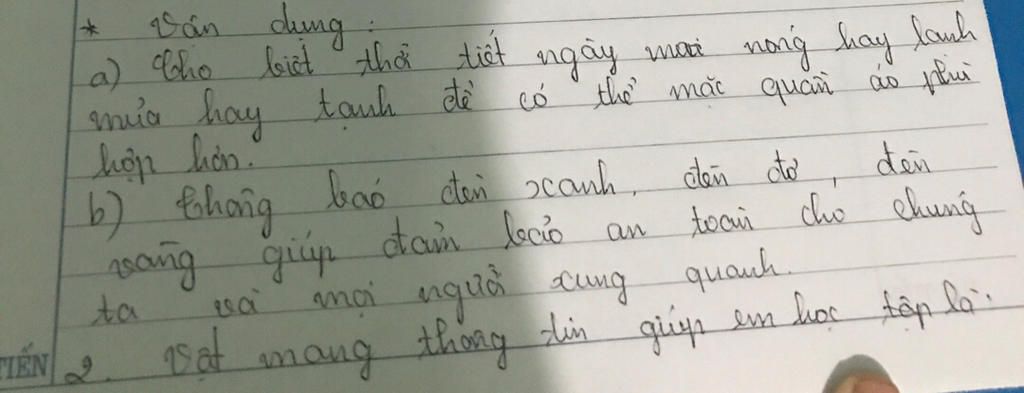 * Vận dụng:
a) Cho biết thời tiết ngày mai nóng hay lạnh
mưa hay tạnh để có thể mặc quần áo phù
hợp hơn.
b) Thông báo đèn xanh, đèn đỏ, đèn
vàng giúp đảm bảo an toàn cho chúng
ta và mọi người xung quanh.
TIẾN
2. Vật mang thông tin giúp em học tập là: